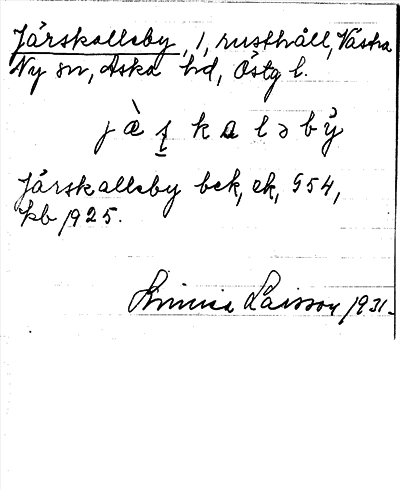 Järskalleby, 1, rusthåll, Västra
Ny sn, Aska hd, Östg l.
jæ̀ʂkaləbỳ
Järskalleby bek, ek, G54,
kb 1925.
Linnéa Larsson 1931.